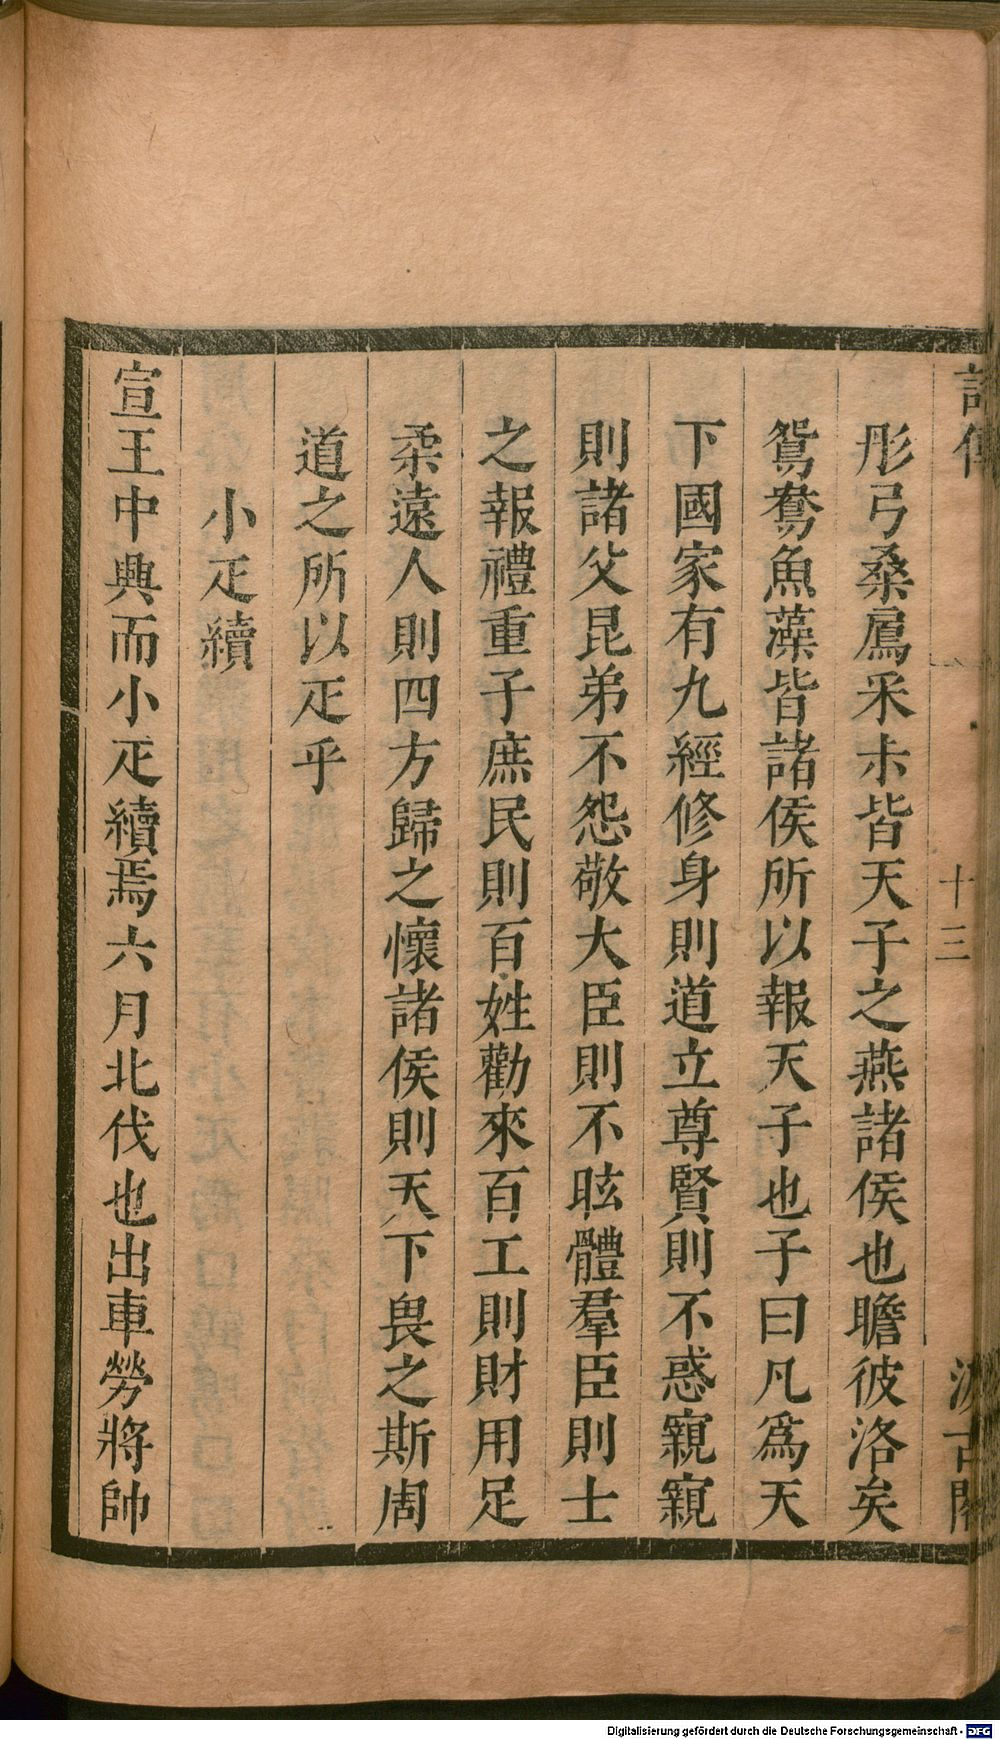 十三
彤弓桑鳸采尗皆天子之燕諸侯也瞻彼洛矣
鴛鴦魚藻皆諸侯所以報天子也子曰凡爲天
下國家有九經修身則道立尊賢則不惑親親
則諸父昆弟不怨敬大臣則不眩體羣臣則士
之報禮重子庶民則百姓勸來百工則財用足
柔遠人則四方歸之懷諸侯則天下畏之斯周
道之所以疋乎
小疋續
宣王中興而小疋續焉六月北伐也出車勞將帥
Digitalisierung gefördert durch die Deutsche Forschungsgemeinschaft - DFG